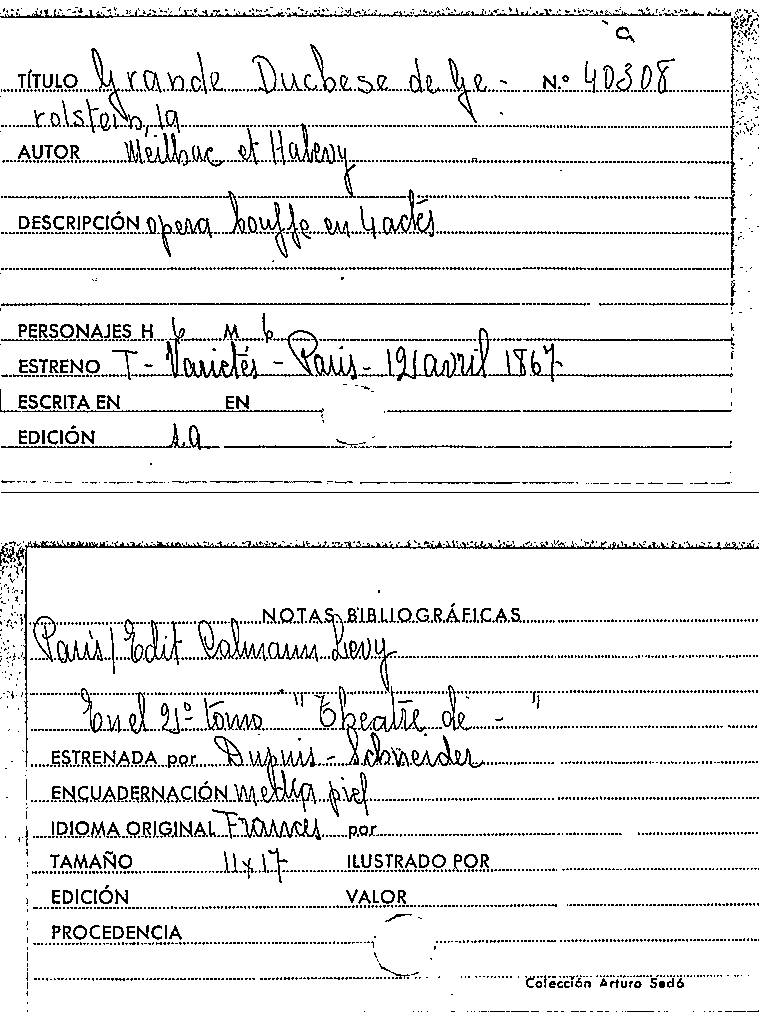 a
TÍTULO Grande Duchese de Ge- N.º 40308
rolstein, la
AUTOR Meilhac et Halevy
DESCRIPCIÓN opera bouffe en 4 actes
PERSONAJES H 6 M 6
ESTRENO T- Varietés - Paris - 12 avril 1867
ESCRITA EN EN
EDICIÓN 1.a
NOTAS BIBLIOGRÁFICAS
Paris / Edit Calmann Levy
En el 2º tomo "Theatre de - "
ESTRENADA por Dupuis - Schneider
ENCUADERNACIÓN media piel
IDIOMA ORIGINAL Frances por
TAMAÑO 11x17 ILUSTRADO POR
EDICIÓN VALOR
PROCEDENCIA
Colección Arturo Sedó